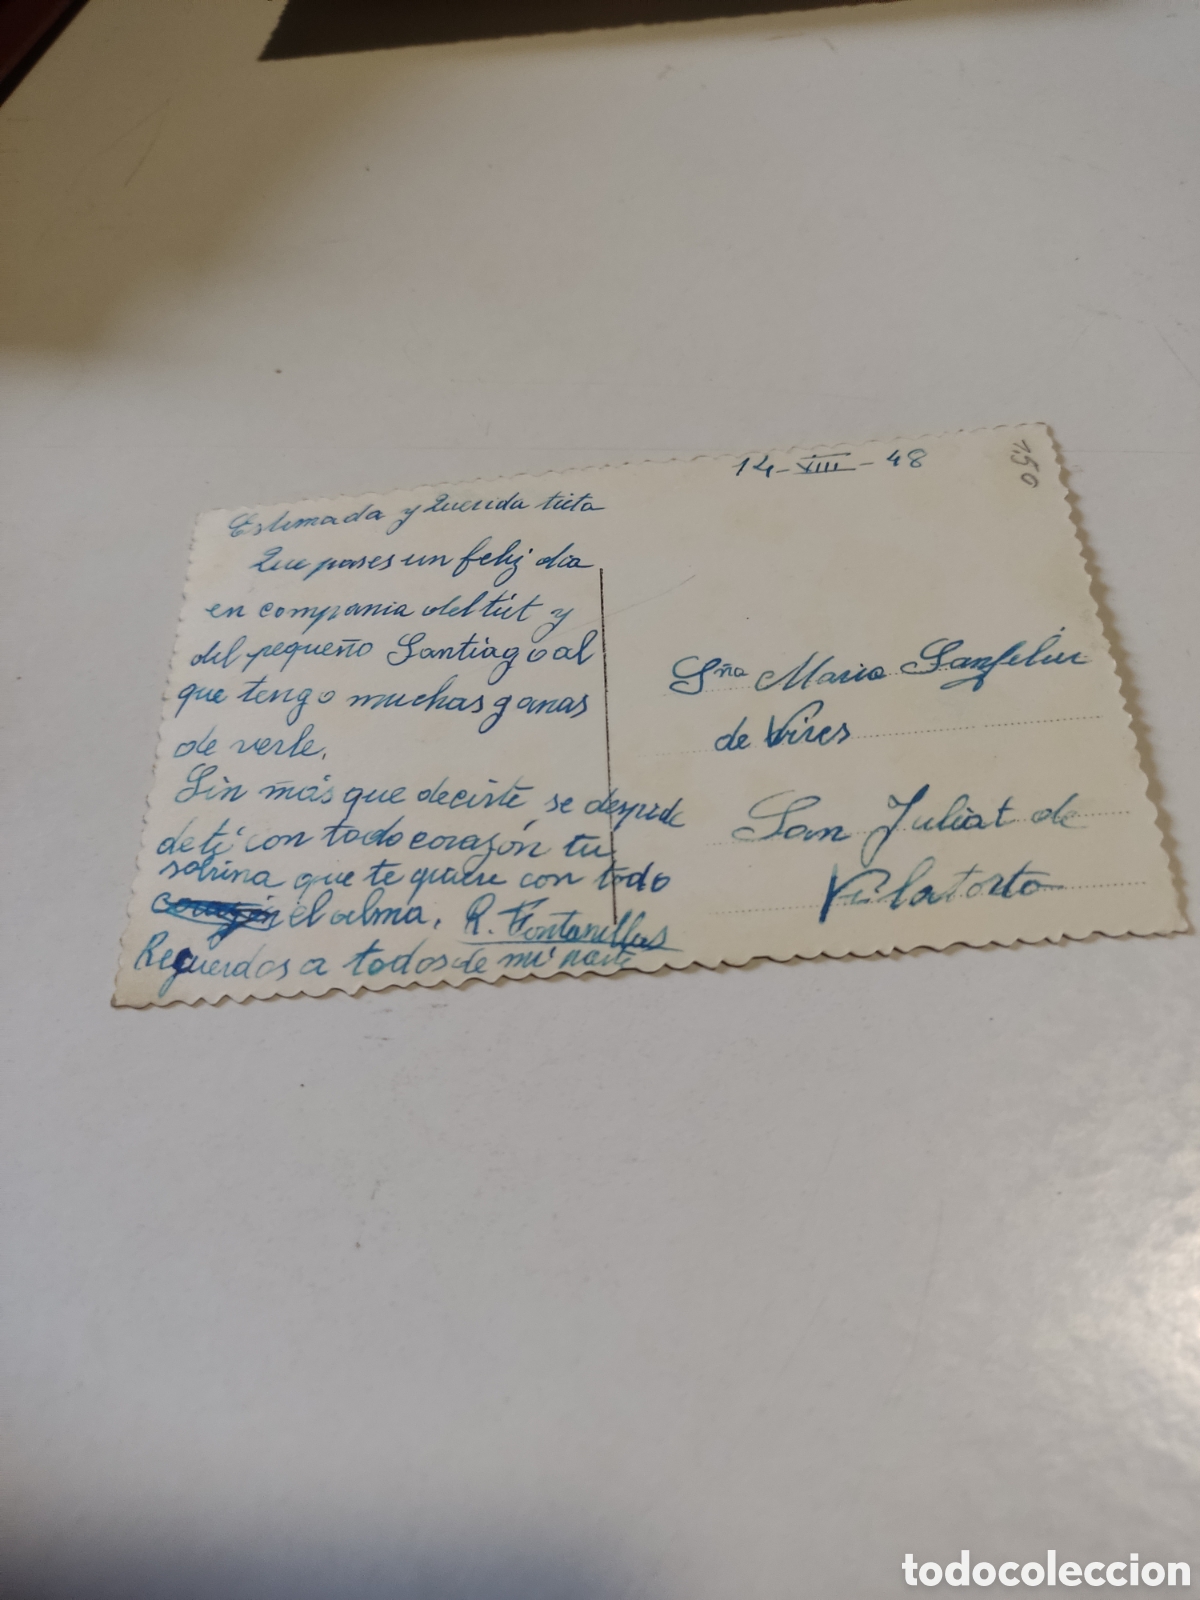 14-VIII-48
1,50
Estimada y Querida tieta
Que pases un feliz dia
en compania del tiet y
del pequeño Santiago al
que tengo muchas ganas
de verle.
Sin más que decirte, se despide
de ti con todo corazón, tu
sobrina que te quiere con todo
el alma, R. Fontanillas
Reguerdos a todos de mi parte
Sña Maria Sanfeliu
de Vires
San Juliat de
Vilatorta
todocoleccion